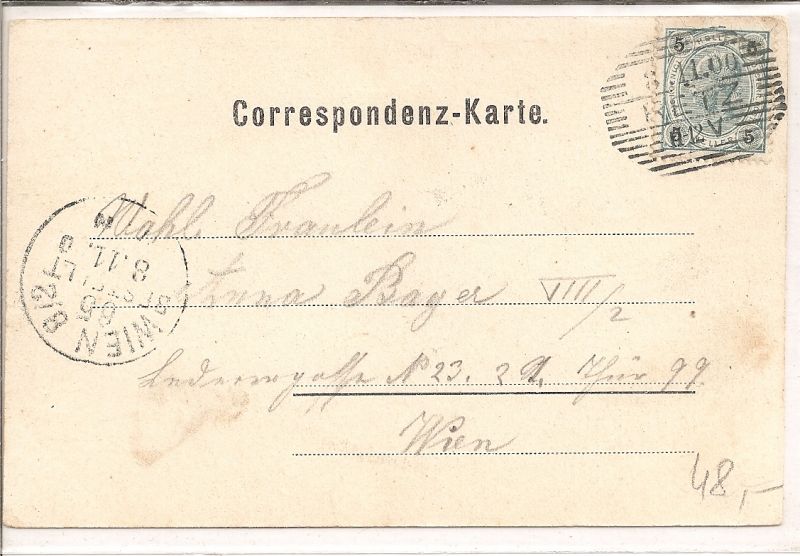 Correspondenz-Karte.
5
5
5
1.00
Wohl. Fräulein
Anna Bayer VIII/2
Lederergasse No 23. 2 St. Thür 99.
Wien
WIEN 8/2
BESTELLT
8.11.
48,-